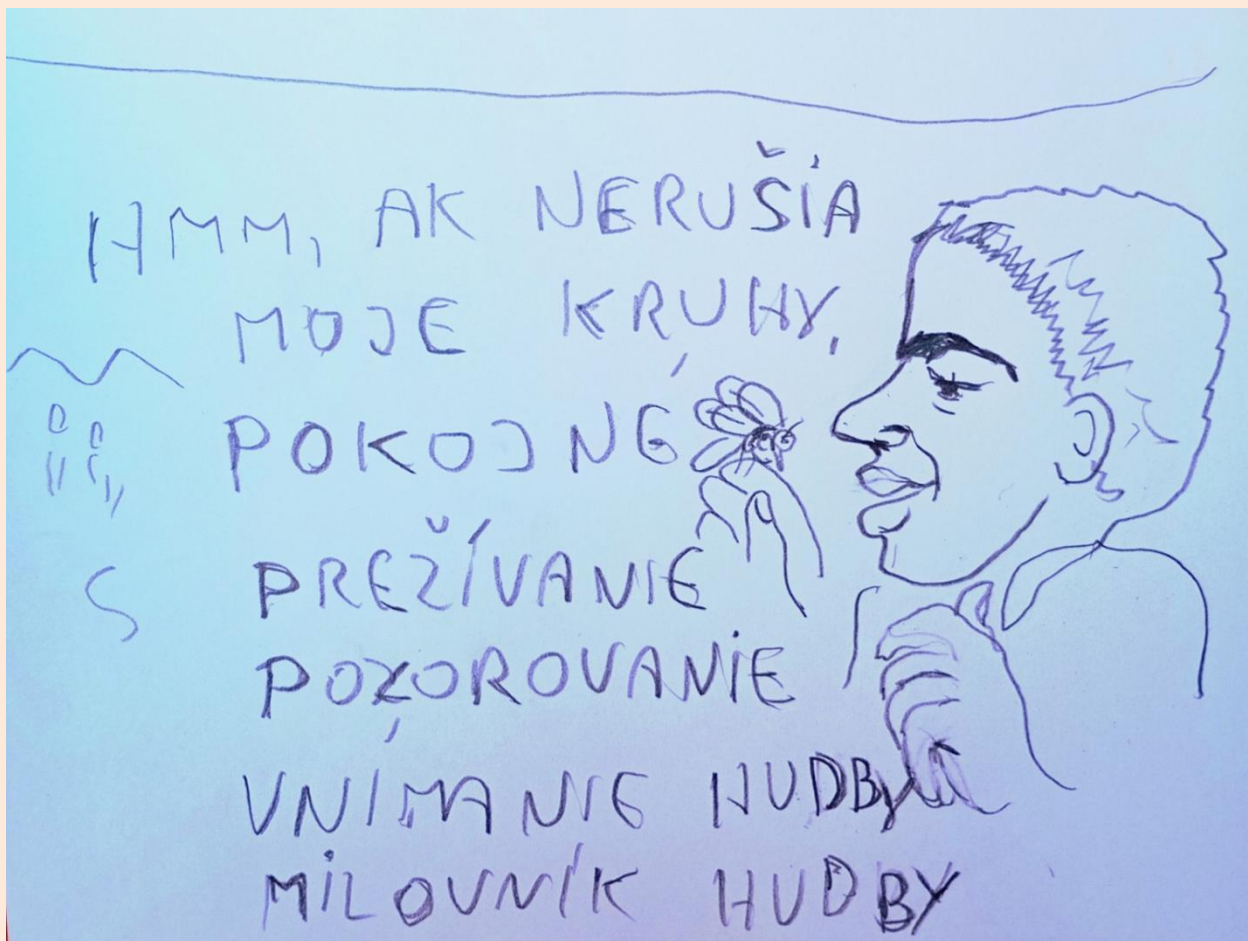 HMM, AK NERUŠIA
MOJE KRUHY,
POKOJNÉ
PREŽÍVANIE
POZOROVANIE
VNÍMANIE HUDBY
MILOVNÍK HUDBY